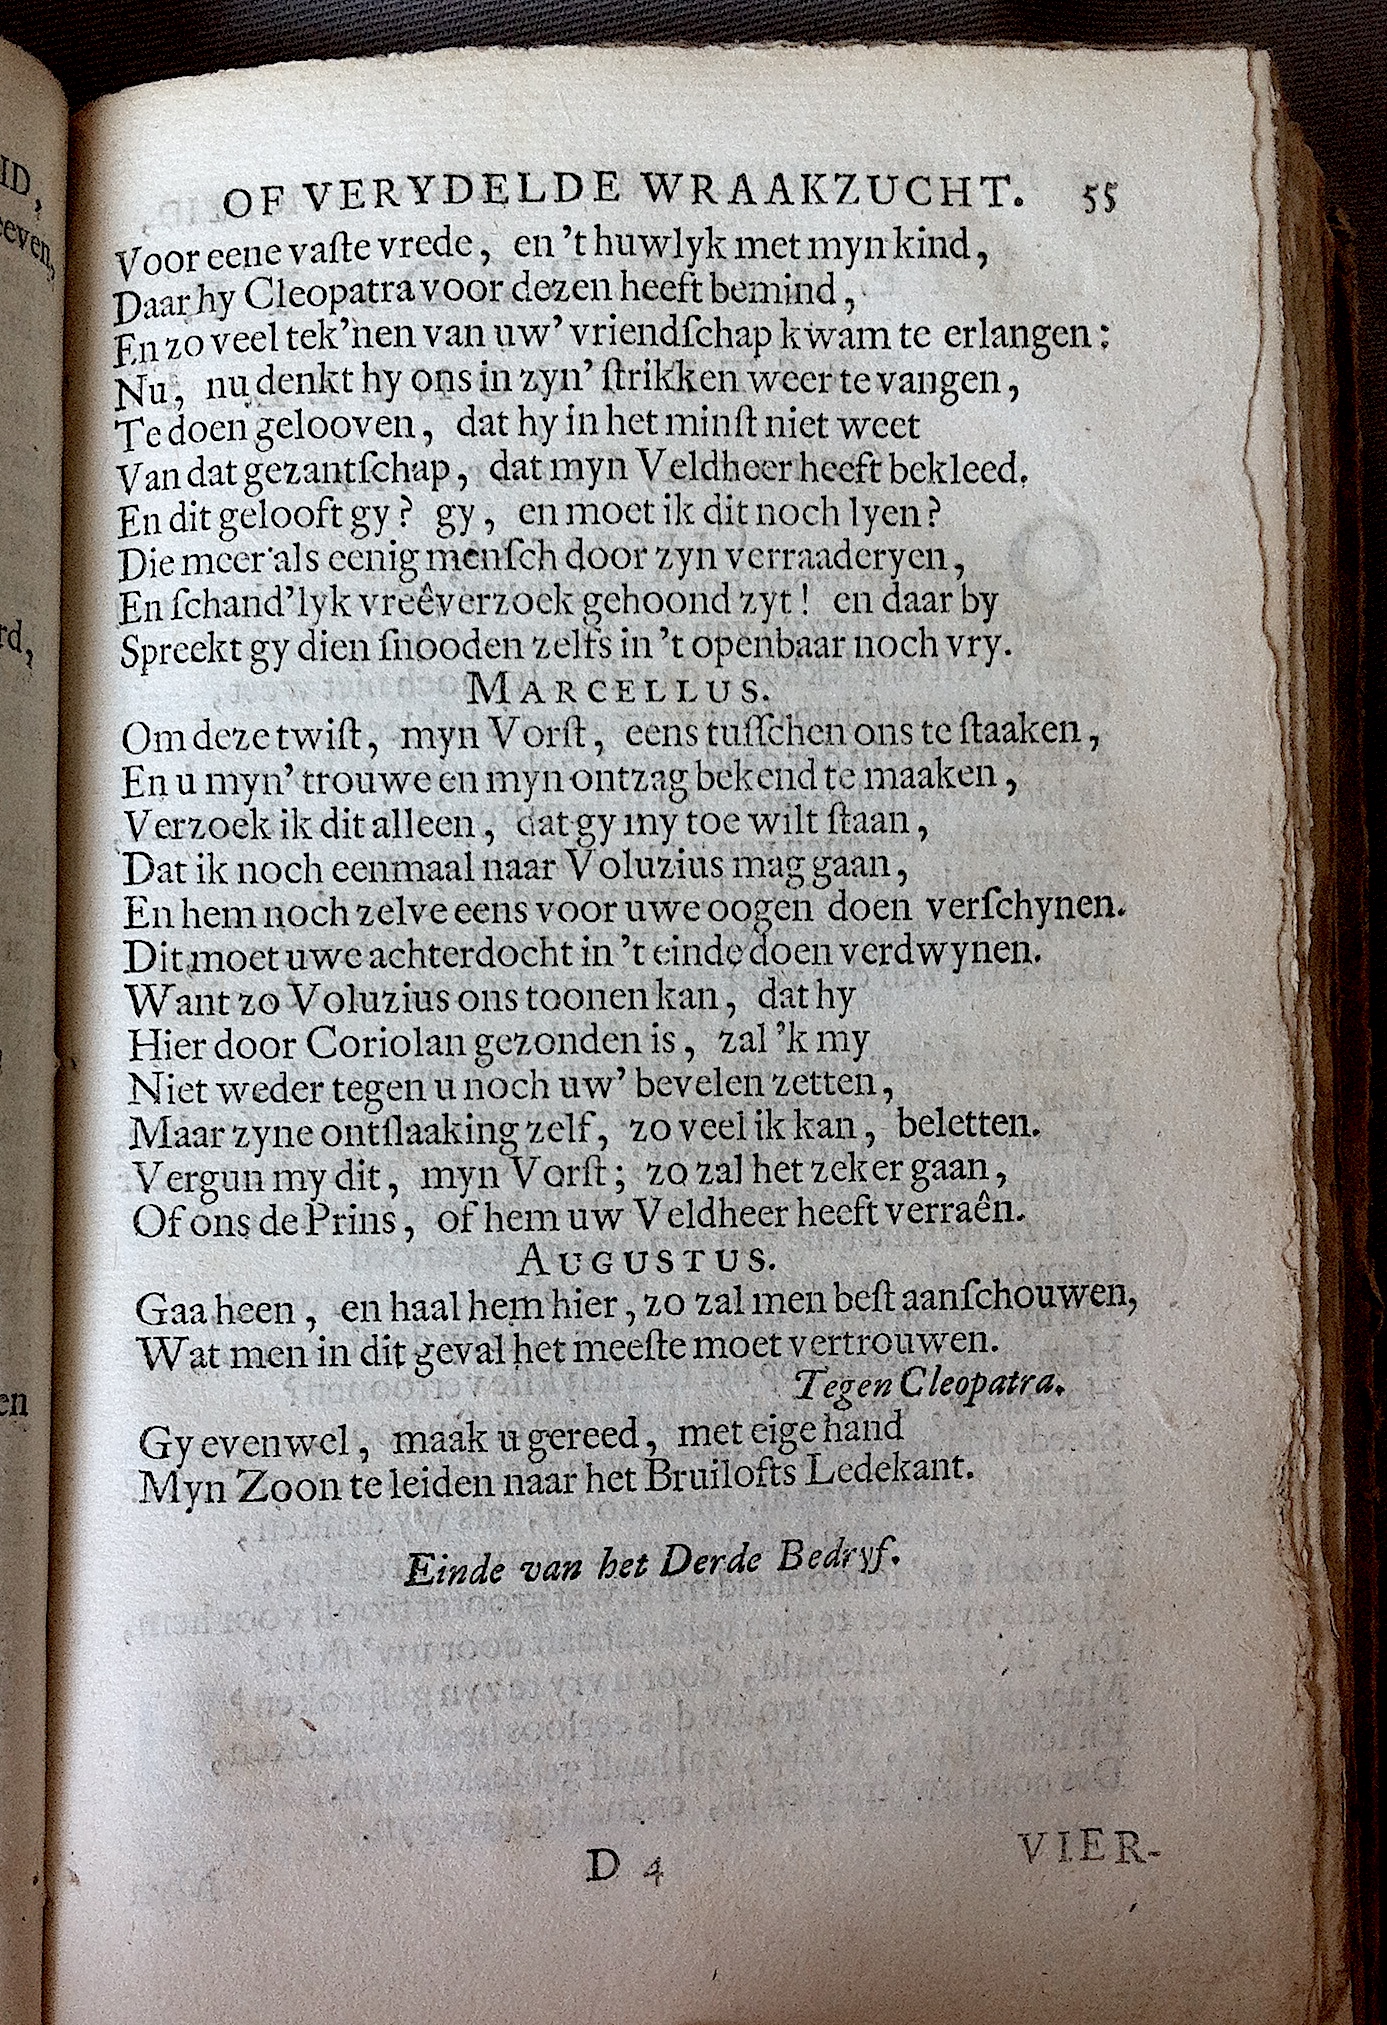 OF VERYDELDE WRAAKZUCHT. 55
Voor eene vaſte vrede, en 't huwlyk met myn kind,
Daar hy Cleopatra voor dezen heeft bemind,
En zo veel tek'nen van uw' vriendſchap kwam te erlangen:
Nu, nu denkt hy ons in zyn' ſtrikken weer te vangen,
Te doen gelooven, dat hy in het minſt niet weet
Van dat gezantſchap, dat myn Veldheer heeft bekleed.
En dit gelooft gy? gy, en moet ik dit noch lyen?
Die meer als eenig menſch door zyn verraaderyen,
En ſchand'lyk vreêverzoek gehoond zyt! en daar by
Spreekt gy dien ſnooden zelfs in 't openbaar noch vry.
MARCELLUS.
Om deze twiſt, myn Vorſt, eens tuſſchen ons te ſtaaken,
En u myn' trouwe en myn ontzag bekend te maaken,
Verzoek ik dit alleen, dat gy my toe wilt ſtaan,
Dat ik noch eenmaal naar Voluzius mag gaan,
En hem noch zelve eens voor uwe oogen doen verſchynen.
Dit moet uwe achterdocht in 't einde doen verdwynen.
Want zo Voluzius ons toonen kan, dat hy
Hier door Coriolan gezonden is, zal 'k my
Niet weder tegen u noch uw' bevelen zetten,
Maar zyne ontſlaaking zelf, zo veel ik kan, beletten.
Vergun my dit, myn Vorſt; zo zal het zeker gaan,
Of ons de Prins, of hem uw Veldheer heeft verraên.
AUGUSTUS.
Gaa heen, en haal hem hier, zo zal men beſt aanſchouwen,
Wat men in dit geval het meeſte moet vertrouwen.
Tegen Cleopatra.
Gy evenwel, maak u gereed, met eige hand
Myn Zoon te leiden naar het Bruilofts Ledekant.
Einde van het Derde Bedryf.
D 4
VIER-